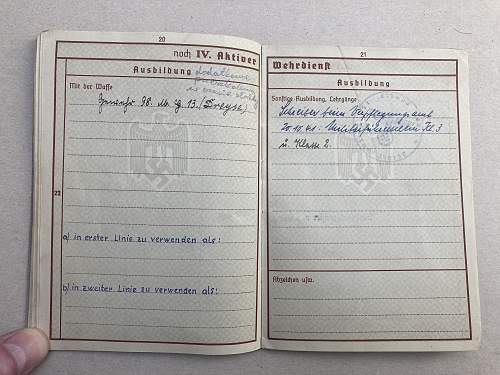 20
noch IV. Aktiver
Ausbildung
Mit der Waffe
Gewehr 98. M.G 13. (Dreyse)
22
a) in erster Linie zu verwenden als:
b) in zweiter Linie zu verwenden als:
21
Wehrdienst
Ausbildung
Sonstige Ausbildung, Lehrgänge
Schreiber beim Verpflegungsamt
20.10.41. Kl. 3
u. Klasse 2.
Abzeichen usw.